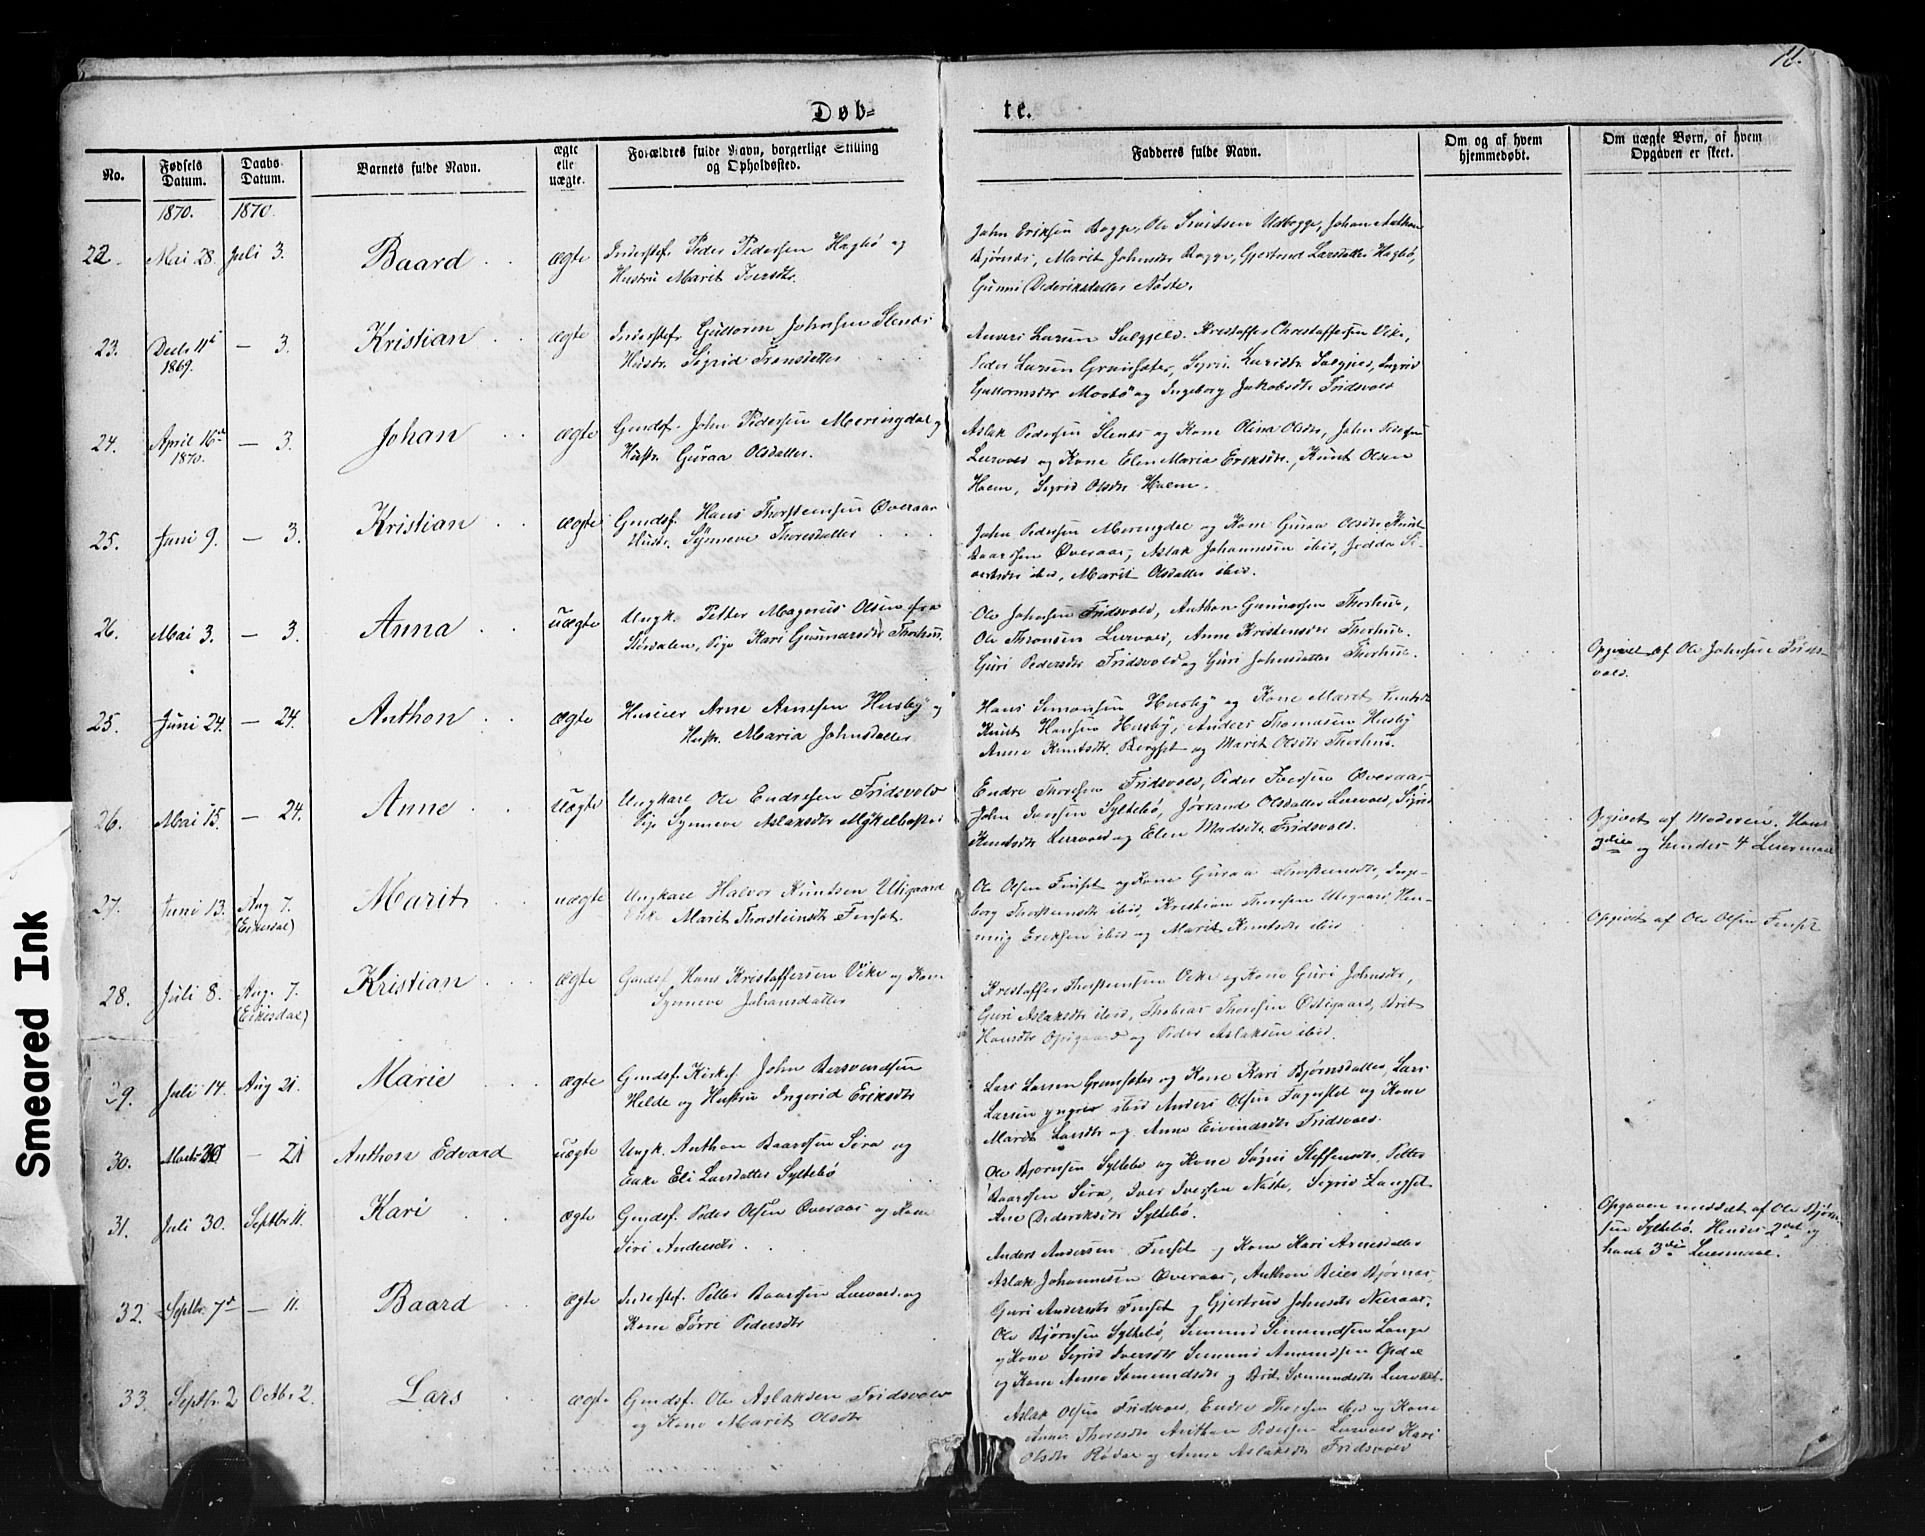 11.
Døb=
te.
No.
Fødsels Datum.
Daabs Datum.
Barnets fulde Navn.
ægte elle uægte.
Forældres fulde Navn, borgerlige Stilling og Opholdssted.
Fadderes fulde Navn.
Om og af hvem hjemmedøbt.
Om uægte Børn, af hvem Opgaven er skeet.
1870. 1870.
22. Mai 28. Juli 3. Baard ægte Inderstef. Peder Pedersen Hagbø og
Hustru Marit Iversdtr.
John Eriksen Bogge, Ole Sivertsen Utbogge, Johan Anthon
Bjørnås, Marit Johnsdtr Bogge, Gjertrud Larsdatter Hagbø,
Gunni Dideriksdatter Nøste.
23. Decb. 11te 1869. — 3. Kristian ægte Inderstef. Guttorm Johnsen Stenes
Hustr. Sigrid Tronsdatter
Anders Larsen Salgjeld. Kristoffer Christoffersen Vike,
Peder Larsen Gransæter, Sigri Larsdtr Salgjeld, Ingrid
Guttormsdtr Mosbø og Ingeborg Jakobsdtr Fridsvold
24. April 16de 1870. — 3. Johan ægte Gmdsf. John Pedersen Meringdal og
Hustr. Guraa Olsdatter.
Aslak Pedersen Stenes og Kone Olina Olsdtr, John Peders.
Lervold og Kone Elen Maria Eriksdtr, Knut Olsen
Hoem, Sigrid Olsdtr Hoem.
25. Juni 9. — 3. Kristian ægte Gmdsf. Hans Thorsteinsen Øveraas
Hustr. Synneve Thoresdatter
John Pedersen Meringdal og Kone Guraa Olsdtr Knut
Baardsen Øveraas, Aslak Johannesen ibid, Jodda Si-
vertsdtr ibid, Marit Olsdatter ibid.
26. Mai 3. — 3. Anna uægte Ungk. Petter Magerus Olsen fra
Størdalen, Pige Kari Gunnarsdtr Thorhus.
Ole Johnsen Fridsvold, Anthon Gunnarsen Thorhus,
Ole Thronsen Lervold, Anne Kristensdtr Thorhus.
Guri Pedersdtr Fridsvold og Guri Johnsdatter Thorhus.
Opgivet af Ole Johnsen Frids-
vold.
25. Juni 24. — 24. Anthon ægte Huseier Arne Arnesen Husby og
Hustr. Maria Johnsdatter
Hans Simonsen Husby og Kone Marit Knutsdtr
Knut Hansen Husby, Anders Thomasen Husby
Anne Knutsdtr. Bergset og Marit Olsdtr Thorhus.
26. Mai 15. — 24. Anne uægte Ungkarl Ole Endresen Fridsvold
Pige Synneve Aslaksdtr Myklebostad
Endre Thoresen Fridsvold, Peder Iversen Øveraas
John Iversen Syltebø, Jørrand Olsdatter Lervold, Sigrid
Knutsdtr Lervold og Elen Madsdtr Fridsvold.
Opgivet af Moderen, Hans
3die og hendes 4 Leiermaal
27. Juni 13. Aug 7. (Eikesdal) Marit uægte Ungkarl Halvor Knutsen Utigaard
Enke Marit Thorsteinsdtr Finset.
Ole Olsen Finset og Kone Guraa Thorsteinsdtr, Inge-
borg Thorsteinsdtr ibid, Kristian Thoresen Utigaard, Hen-
nnig Eriksen ibid og Marit Knutsdtr ibid
Opgivet af Ole Olsen Finset
28. Juli 8. Aug. 7. (Eikesdal) Kristian ægte Gmdsf. Hans Kristoffersen Vike og Kone
Synneve Johansdatter
Kristoffer Thorsteinsen Vike og Kone Guri Johnsdtr,
Guri Aslaksdtr ibid, Thobias Thoresen Østigaard, Brit
Hansdtr Opigaard og Peder Aslaksen ibid.
29. Juli 14. Aug 21. Marie ægte Gmdsf. Kirkes. John Bersvendsen
Helde og Hustru Ingerid Eriksdtr
Lars Larsen Gransæter og Kone Kari Bjørnsdatter, Lars
Larsen yngre ibid Anders Olsen Fagerslet og Kone
Marit Larsdtr og Anne Eivindsdtr Fridsvold.
30. — 21 Anthon Edvard uægte Ungk. Anthon Baardsen Sira og
Enke Eli Larsdatter Syltebø
Ole Bjørnsen Syltebø og Kone Sigri Steffensdtr, Petter
Baardsen Sira, Iver Iversen Nøste, Sigrid Langset
Ane Dideriksdtr Syltebø.
Opgaven meddelt af Ole Bjørn-
sen Syltebø. Hendes 2det og
hans 3die Leiermaal.
31. Juli 30. Septbr. 11. Kari ægte Gmdsf. Peder Olsen Øveraas og Kone
Siri Andersdtr.
Anders Andersen Finset og Kone Kari Arnesdatter
Aslak Johannesen Øveraas, Anthon Beier Bjørnås,
Guri Andersdtr Finset og Gjertrud Johnsdtr Neeraas.
32. Septbr. 7de — 11. Baard ægte Inderstef. Petter Baardsen Lervold og
Kone Tørri Pedersdtr
Ole Bjørnsen Syltebø, Simund Simundsen Lange
og Kone Sigrid Iversdtr Simund Amundsen Opdøl
og Kone Anne Simundsdtr og Brit Simundsdtr Lervold.
33. Septbr. 2 Octbr. 2. Lars ægte Gmdsf. Ole Aslaksen Fridsvold
og Kone Marit Olsdtr
Aslak Olsen Fridsvold, Endre Thoresen ibid og Kone
Anne Thoresdtr Anthon Pedersen Lervold Kari
Olsdtr Rødal og Anne Aslaksdtr Fridsvold
Smeared Ink